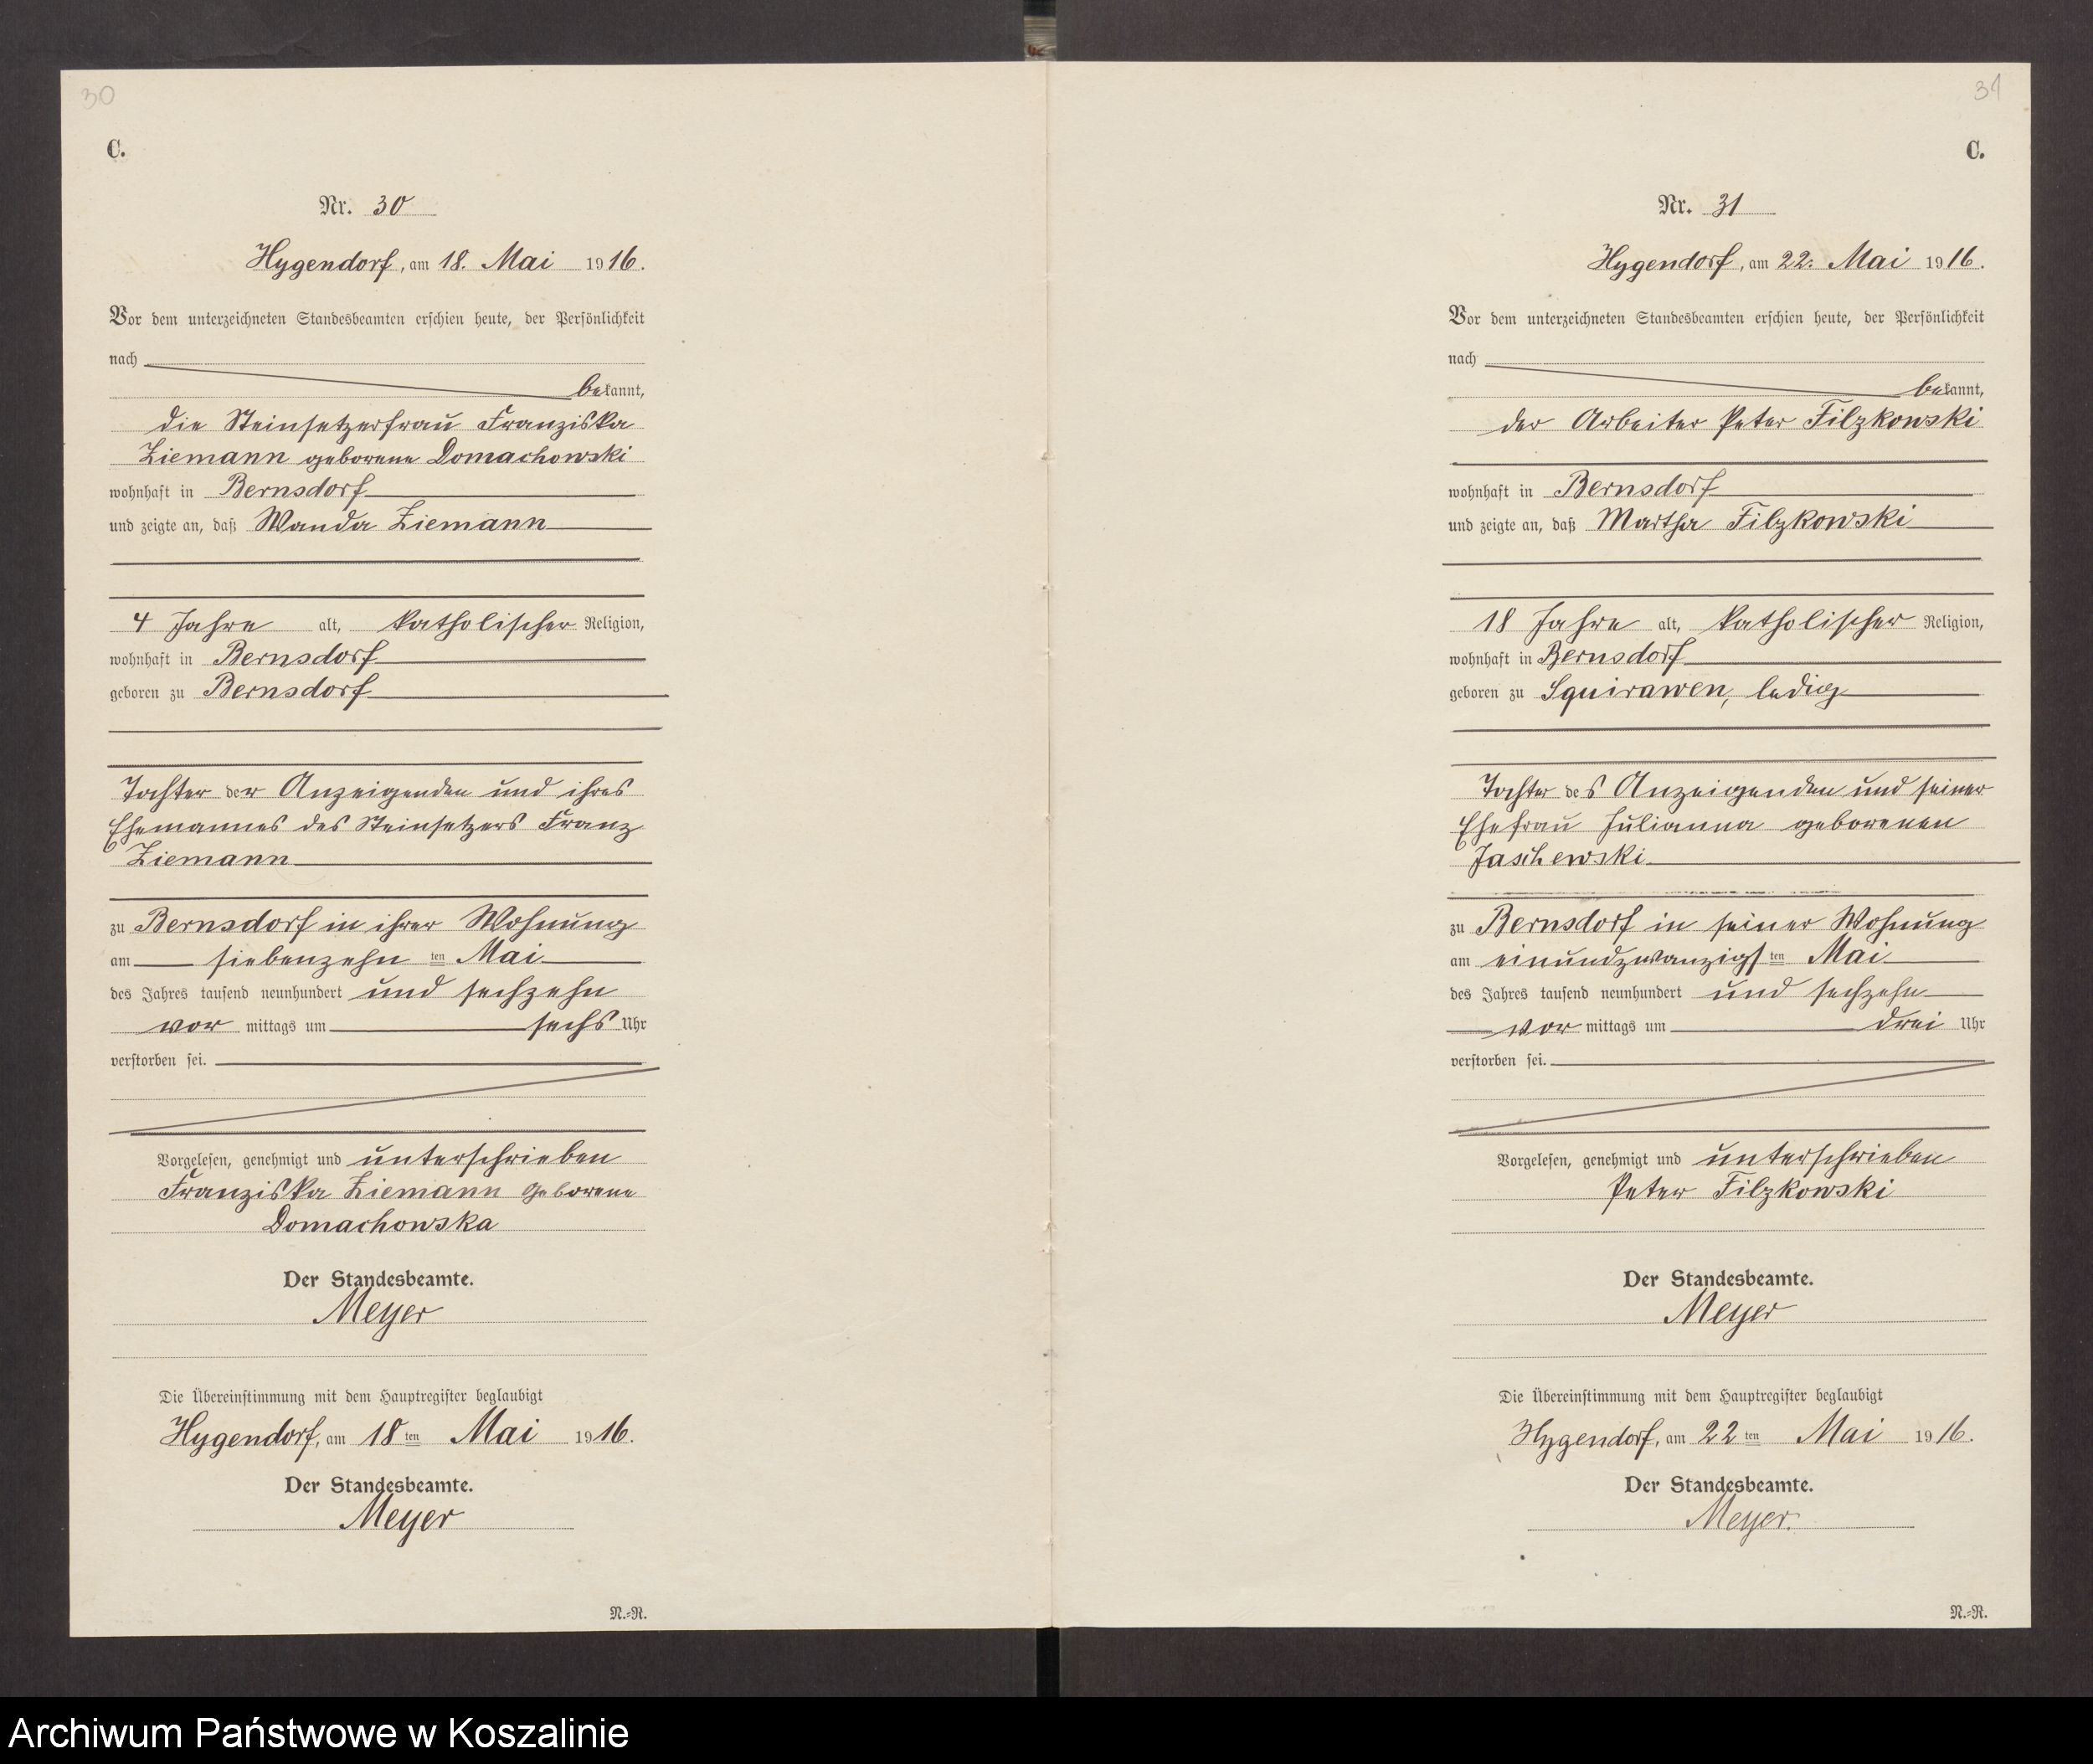 30
C.
Nr. 30
Hygendorf, am 18. Mai 1916.
Vor dem unterzeichneten Standesbeamten erschien heute, der Persönlichkeit
nach
bekannt,
die Steinsetzerfrau Franziska
Ziemann geborene Domachowski
wohnhaft in Bernsdorf
und zeigte an, daß Wanda Ziemann
4 Jahre alt, katholischer Religion,
wohnhaft in Bernsdorf
geboren zu Bernsdorf
Tochter der Anzeigenden und ihres
Ehemannes des Steinsetzers Franz
Ziemann
zu Bernsdorf in ihrer Wohnung
am siebenzehn ten Mai
des Jahres tausend neunhundert und sechzehn
vor mittags um sechs Uhr
verstorben sei.
Vorgelesen, genehmigt und unterschrieben
Franziska Ziemann geborene
Domachowska
Der Standesbeamte.
Meyer
Die Übereinstimmung mit dem Hauptregister beglaubigt
Hygendorf, am 18 ten Mai 1916.
Der Standesbeamte.
Meyer
N.=R.
31
C.
Nr. 31
Hygendorf, am 22. Mai 1916.
Vor dem unterzeichneten Standesbeamten erschien heute, der Persönlichkeit
nach
bekannt,
der Arbeiter Peter Filzkowski
wohnhaft in Bernsdorf
und zeigte an, daß Martha Filzkowski
18 Jahre alt, katholischer Religion,
wohnhaft in Bernsdorf
geboren zu Squirawen, ledig
Tochter des Anzeigenden und seiner
Ehefrau Julianna geborenen
Jaschewski
zu Bernsdorf in seiner Wohnung
am einundzwanzigs ten Mai
des Jahres tausend neunhundert und sechzehn
vor mittags um drei Uhr
verstorben sei.
Vorgelesen, genehmigt und unterschrieben
Peter Filzkowski
Der Standesbeamte.
Meyer
Die Übereinstimmung mit dem Hauptregister beglaubigt
Hygendorf, am 22 ten Mai 1916.
Der Standesbeamte.
Meyer.
N.=R.
Archiwum Państwowe w Koszalinie